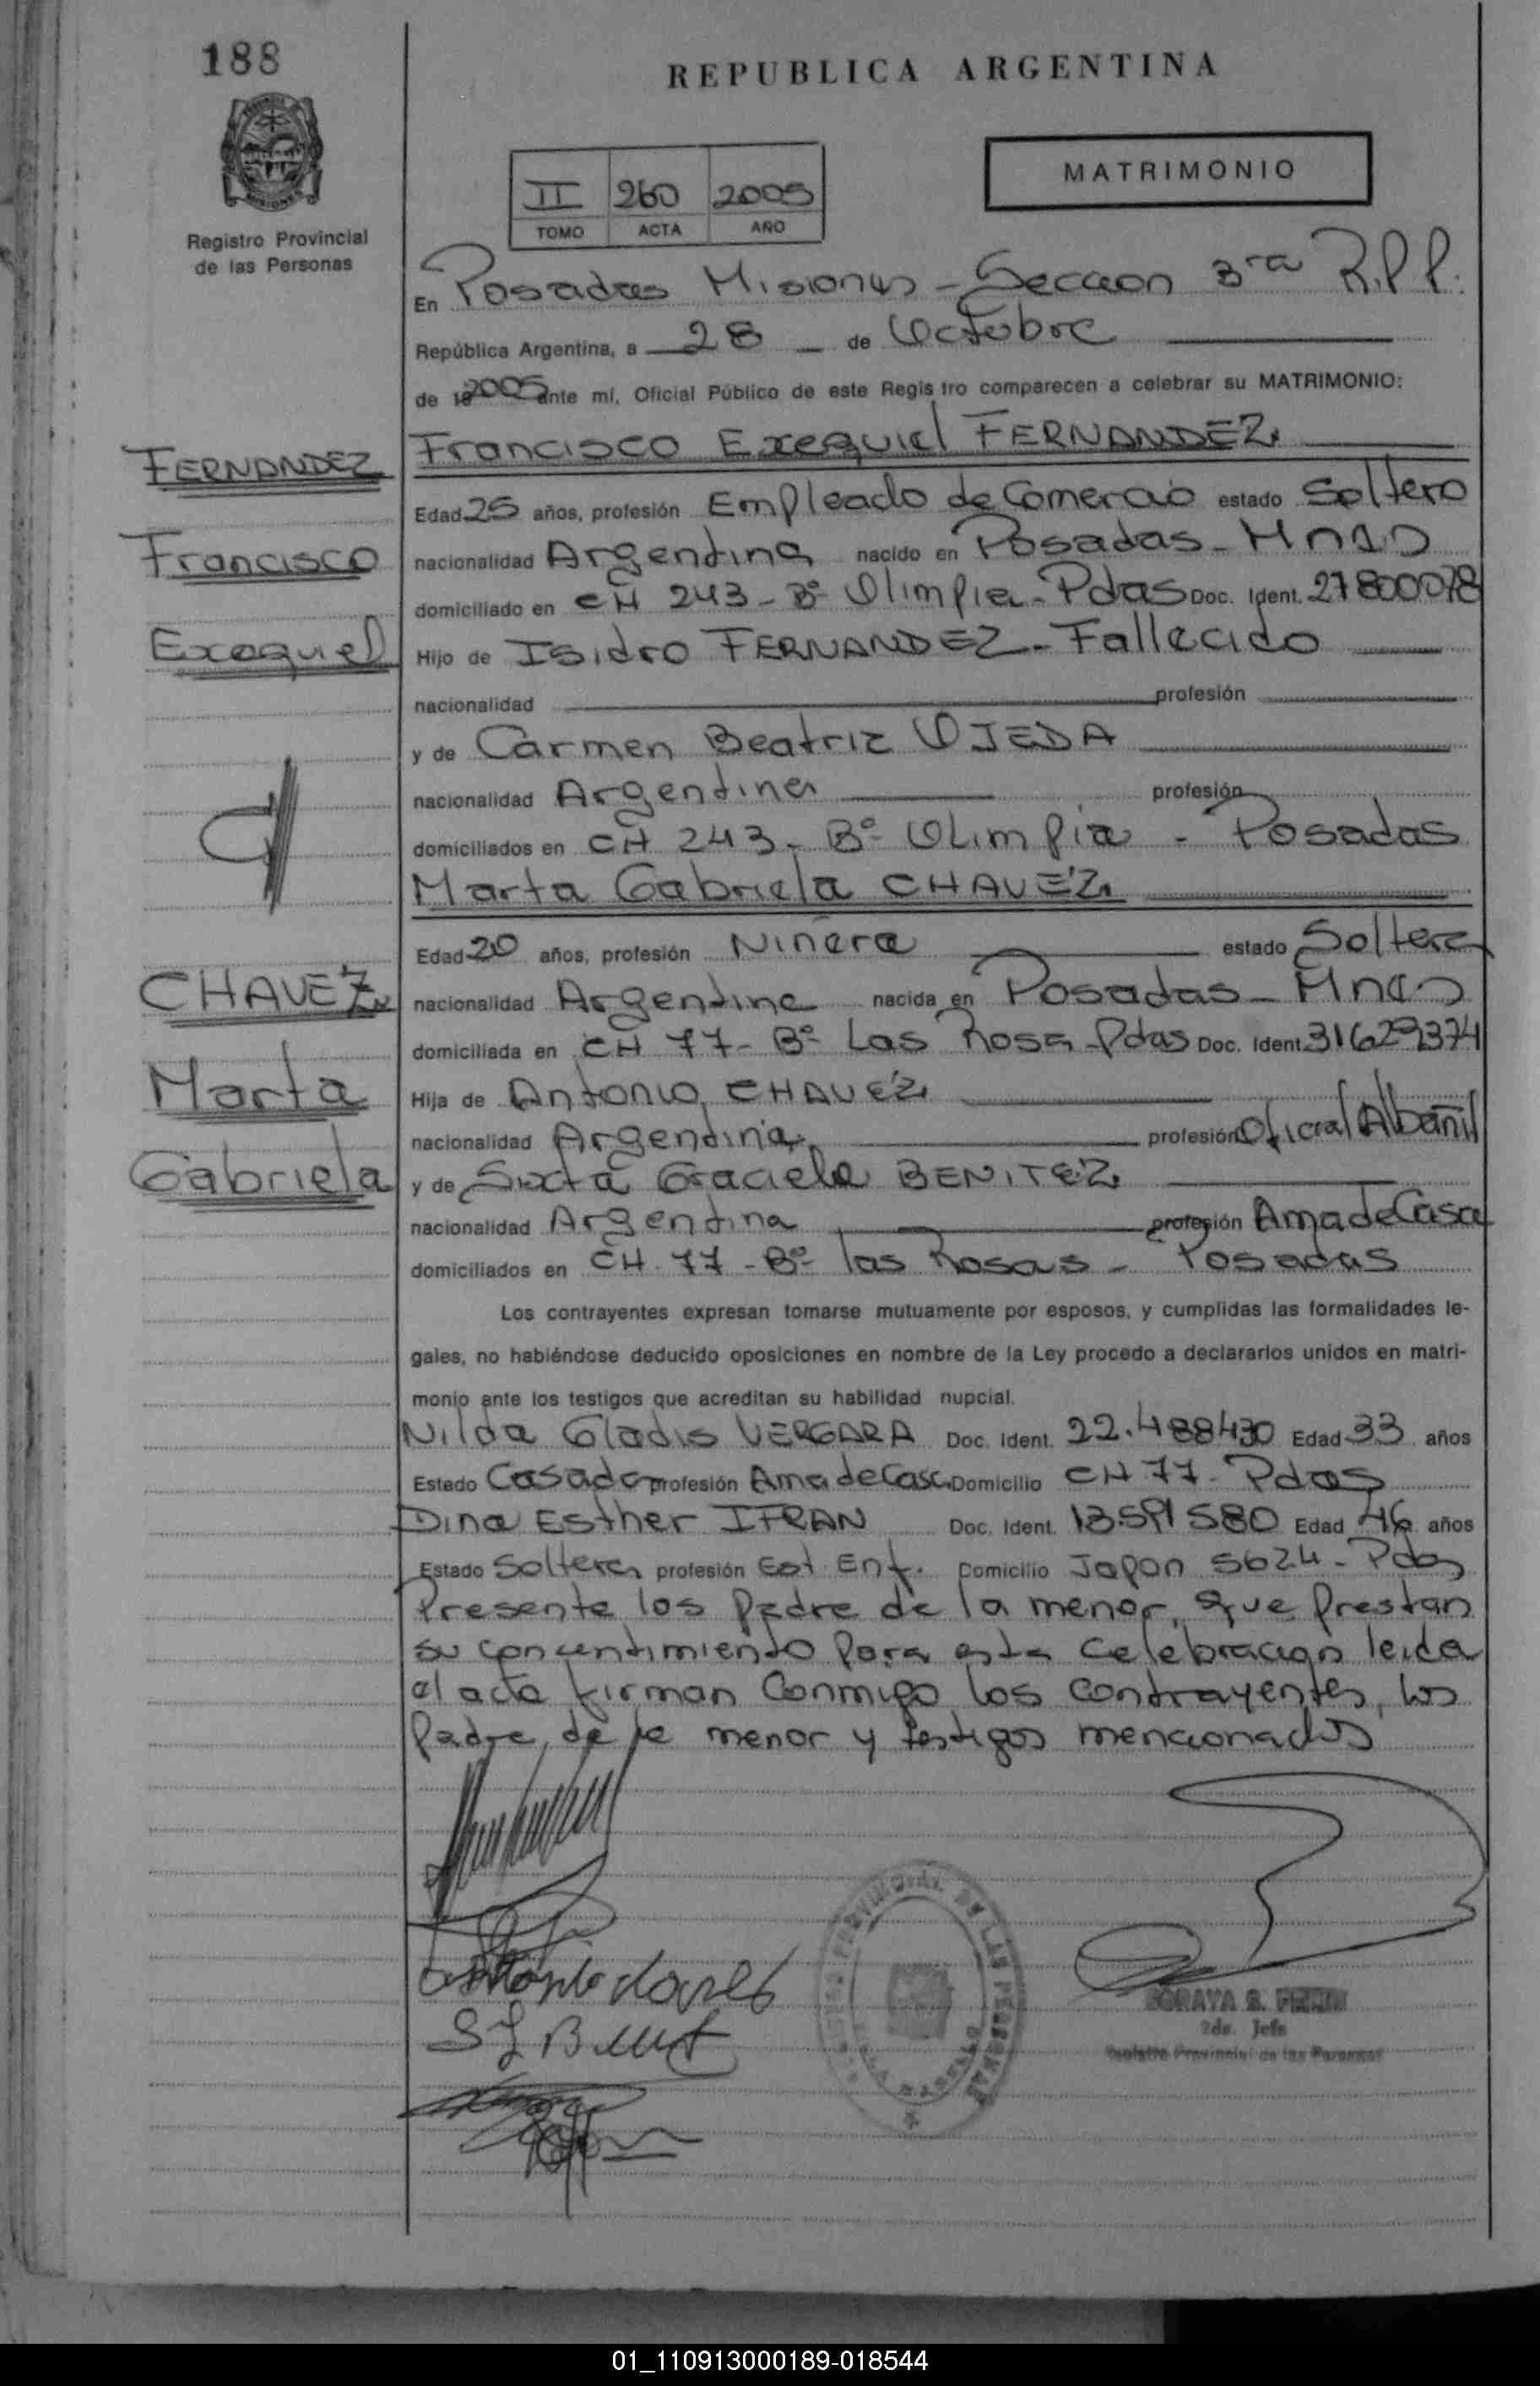 188
REPUBLICA ARGENTINA
MATRIMONIO
II 260 2005
TOMO ACTA AÑO
Registro Provincial
de las Personas
En Posadas Misiones - Seccion 3ra R.P.P.
República Argentina, a 28 de Octubre
de 19 2005 ante mí, Oficial Público de este Registro comparecen a celebrar su MATRIMONIO:
FERNANDEZ
Francisco
Exequiel
Francisco Exequiel FERNANDEZ
Edad 25 años, profesión Empleado de Comercio estado Soltero
nacionalidad Argentina nacido en Posadas - Mnes
domiciliado en CH 243 - Bº Olimpia - Pdas Doc. Ident. 27800078
Hijo de Isidro FERNANDEZ - Fallecido
nacionalidad profesión
y de Carmen Beatriz OJEDA
nacionalidad Argentina profesión
domiciliados en CH 243 - Bº Olimpia - Posadas
CHAVEZ
Marta
Gabriela
Marta Gabriela CHAVEZ
Edad 20 años, profesión Niñera estado Soltera
nacionalidad Argentina nacida en Posadas - Mnes
domiciliada en CH 77 - Bº Las Rosa - Pdas Doc. Ident. 31629374
Hija de Antonio CHAVEZ
nacionalidad Argentina profesión Oficial Albañil
y de Sixta Graciela BENITEZ
nacionalidad Argentina profesión Ama de Casa
domiciliados en CH. 77 - Bº las Rosas - Posadas
Los contrayentes expresan tomarse mutuamente por esposos, y cumplidas las formalidades le-
gales, no habiéndose deducido oposiciones en nombre de la Ley procedo a declararlos unidos en matri-
monio ante los testigos que acreditan su habilidad nupcial.
Nilda Gladis VERGARA Doc. Ident. 22.488430 Edad 33 años
Estado Casada profesión Ama de Casa Domicilio CH 77 - Pdas
Dina Esther IFRAN Doc. Ident. 13591580 Edad 46 años
Estado Soltera profesión Est Enf. Domicilio Japon 5624 - Pdas
Presente los Padre de la menor, que Prestan
su consentimiento Para esta celebracion leida
el acta firman Conmigo los contrayentes, los
Padre, de la menor y testigos mencionados
SORAYA S.
2da. Jefe
Registro Provincial de las Personas
01_110913000189-018544